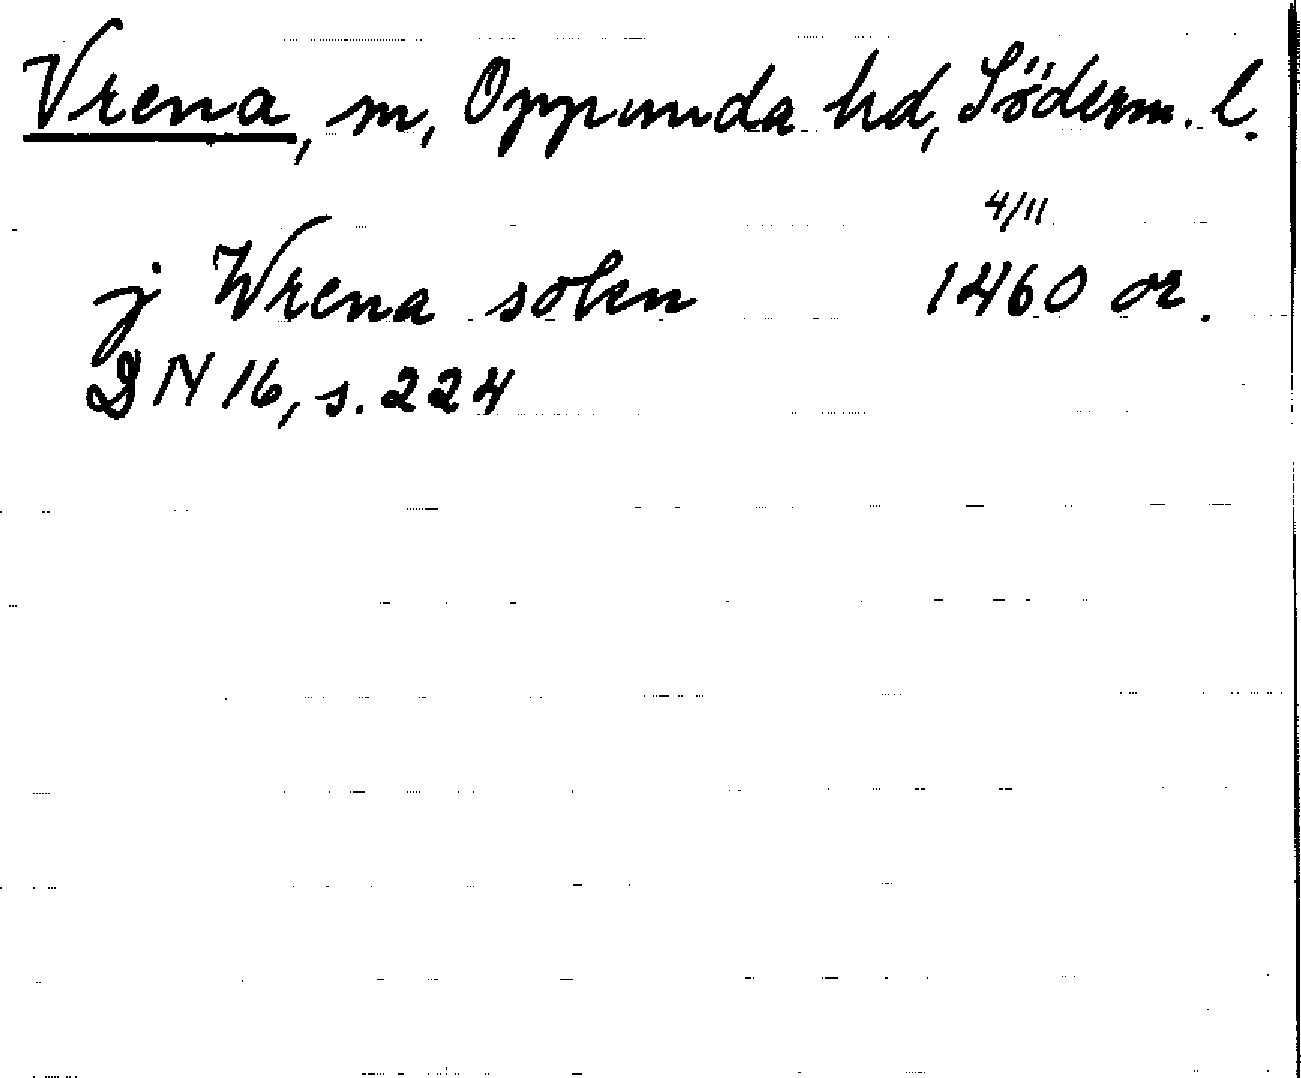 Vrena, sn, Oppunda hd, Söderm. l.
4/11
j Wrena sokn 1460 or.
DN 16, s. 224